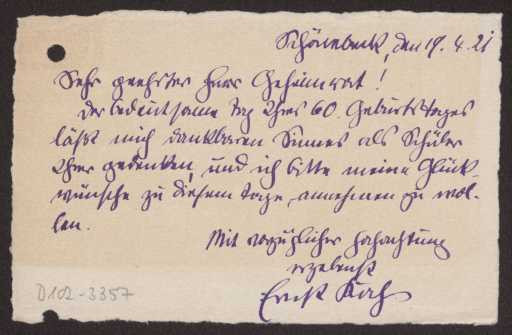 Schönebeck, den 19. 4. 21
Sehr geehrter Herr Geheimrat!
Der bedeutsame Tag Ihres 60. Geburtstages
läßt mich dankbaren Sinnes als Schüler
Ihrer gedenken, und ich bitte meine Glück-
wünsche zu diesem Tage annehmen zu wol-
len.
Mit vorzüglicher Hochachtung
ergebenst
Ernst Koch
D102-3357